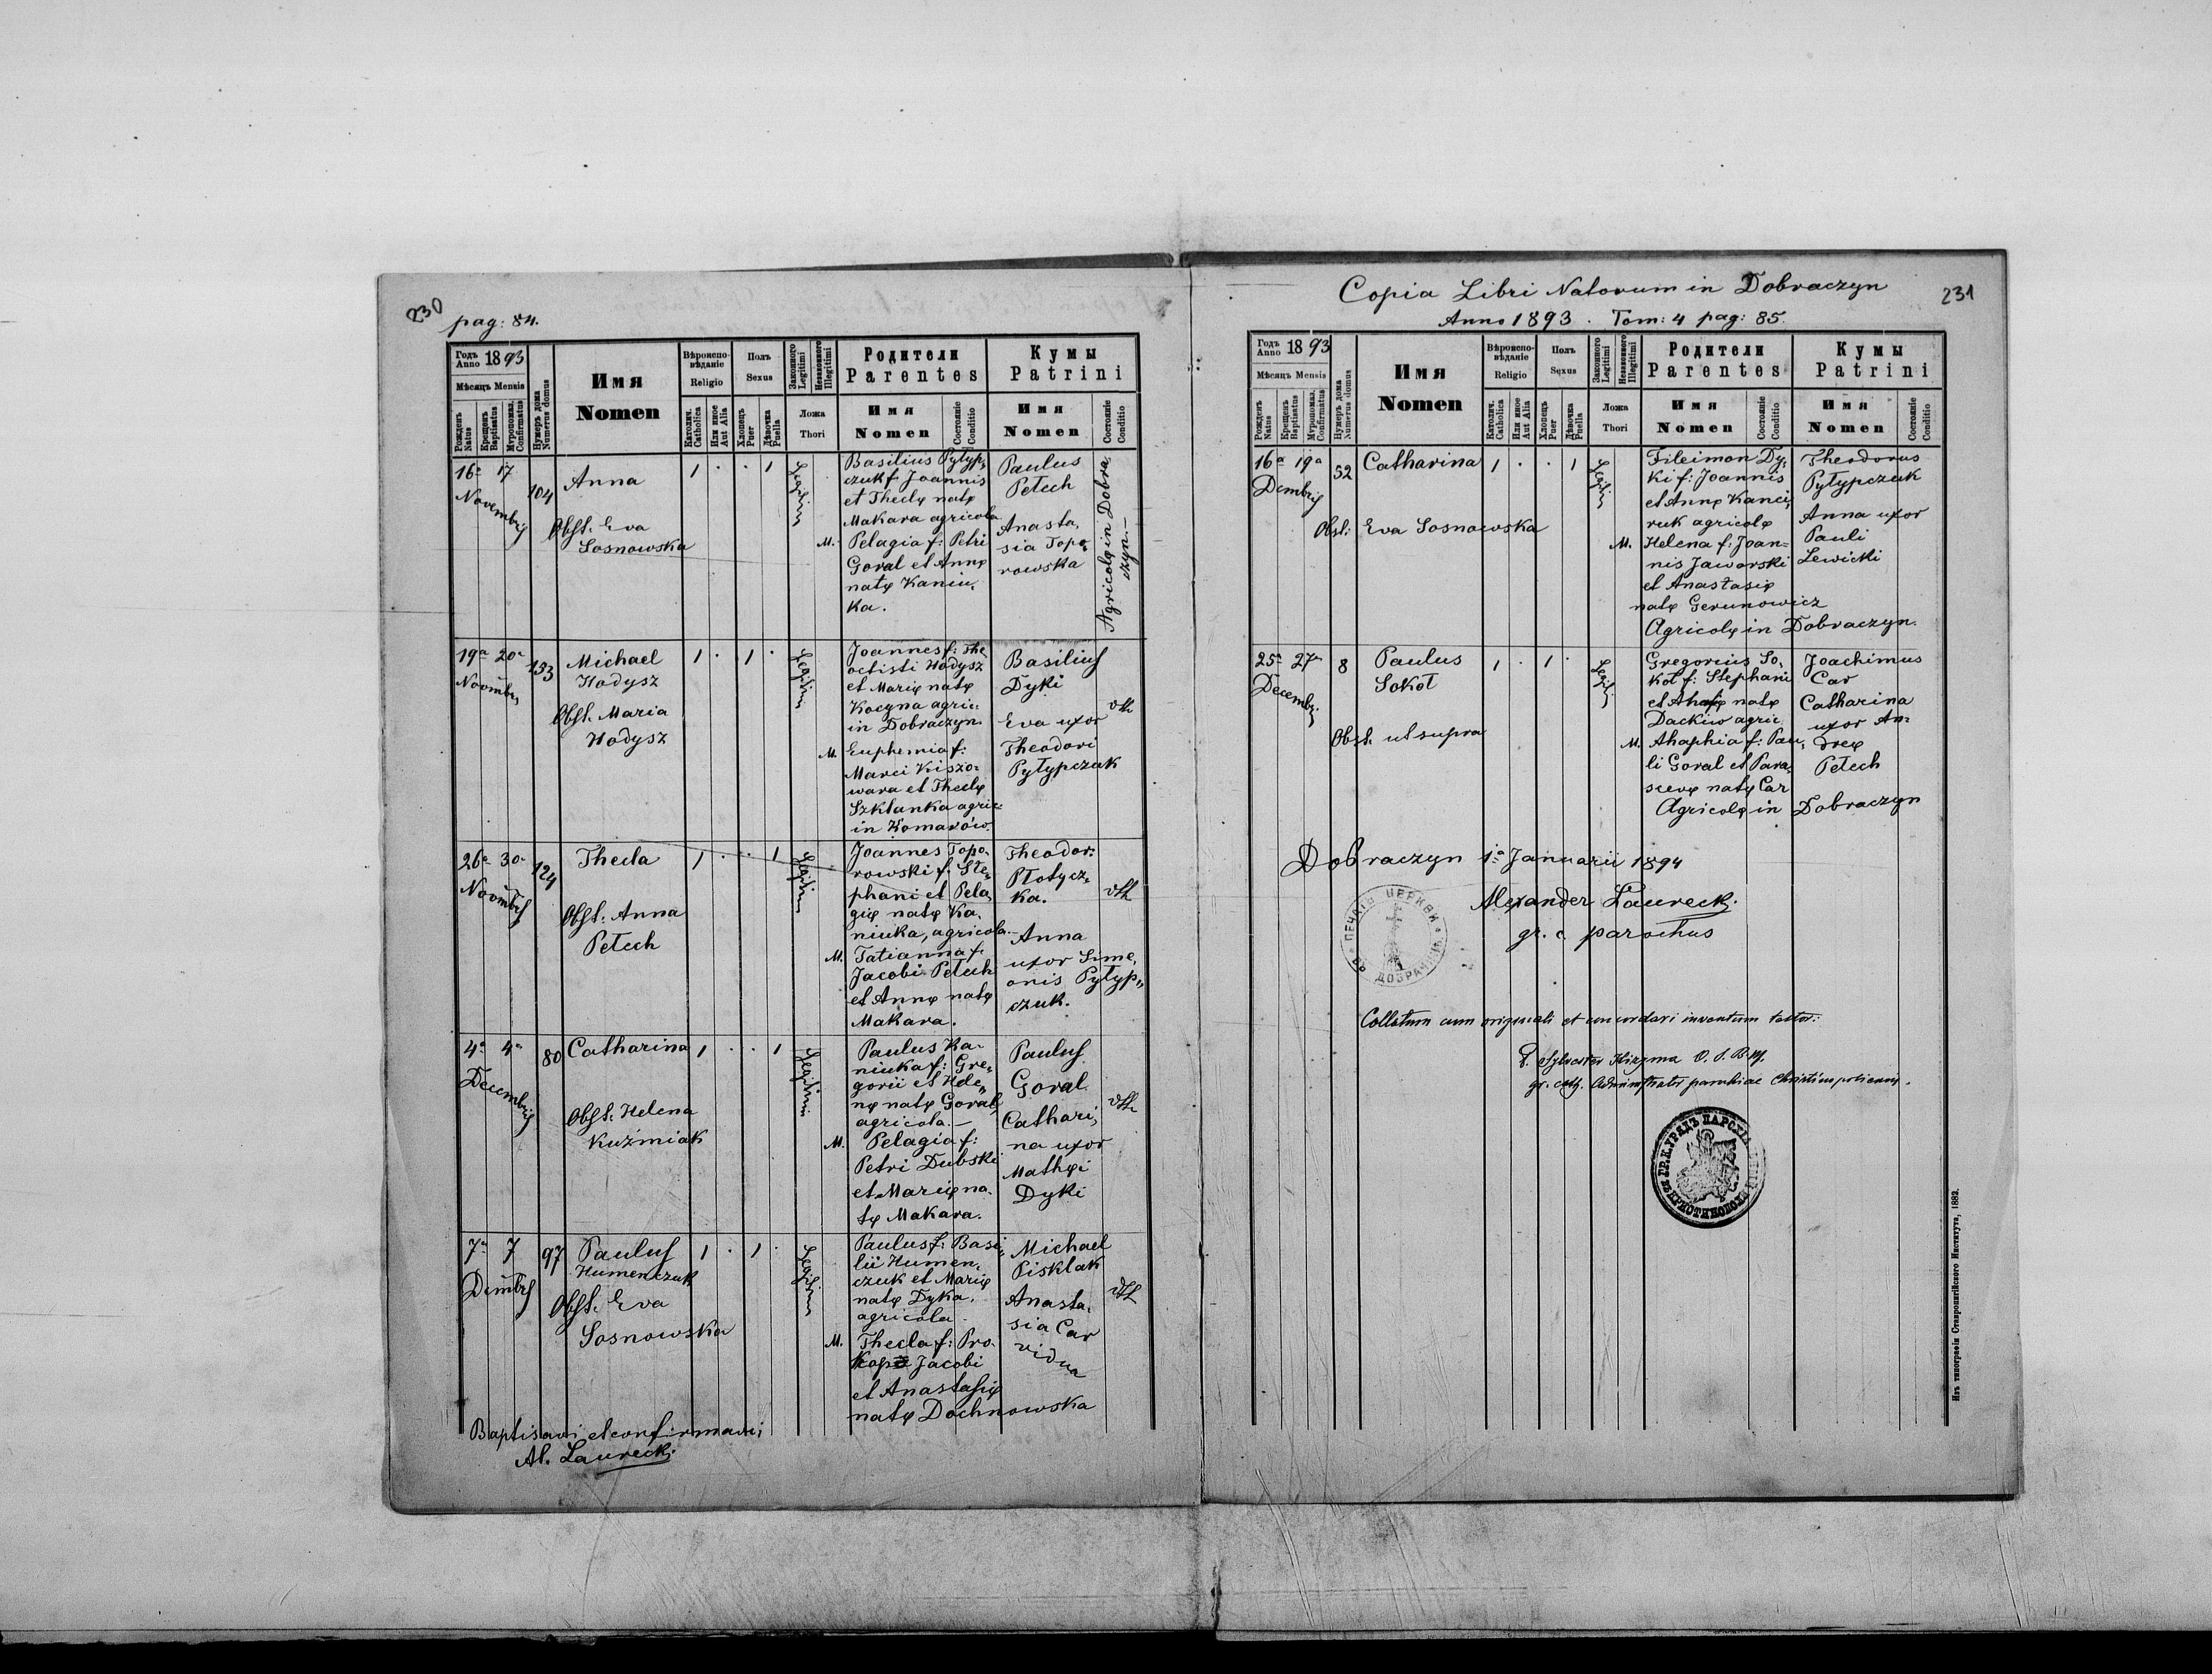 230
pag: 84.
Годъ Anno 1893
Мѣсяць Mensis
Рожденъ Natus
Крещенъ Baptisatus
Мѵропомаз. Confirmatus
Нумеръ дома Numerus domus
Имя
Nomen
Вѣроиспо-
вѣданіе
Religio
Католич. Catholica
Или иное Aut Alia
Полъ
Sexus
Хлопецъ Puer
Дѣвочка Puella
Законного Legitimi
Незаконного Illegitimi
Ложа
Thori
Родители
Parentes
Имя
Nomen
Состояніе Conditio
Кумы
Patrini
Имя
Nomen
Состояніе Conditio
16a 17
Novembris
104
Anna
Obst. Eva
Sosnowska
1 . . 1
Legitimi
Basilius Pytyp„
czuk f. Joannis
et Theclę natę
Makara agricola
M. Pelagia f: Petri
Goral et Annę
natę Kaniu„
ka.
Paulus
Petech
Anasta„
sia Topo„
rowska
Agricolę in Dobra„
czyn.—
19a 20a
Novembris
133
Michael
Hodysz
Obst. Maria
Hodysz
1 . 1 .
Legitimi
Joannes f: The„
octisti Hodysz
et Marię natę
Kocyna agric:
in Dobraczyn.
M. Euphemia f:
Marci Kiszo„
wara et Theclę
Szklanka agric:
in Komarów.
Basilius
Dyki
Eva uxor
Theodori
Pytypczuk
26a 30a
124
Thecla
Obst. Anna
Petech
1 . . 1
Legitimi
Joannes Topo„
rowski f. Ste„
phani et Pela„
gię natę Ka„
niuka, agricola.
M. Tatianna f.
Jacobi Petech
et Annę natę
Makara.
Theodor:
Płotycz„
ka.
Anna
uxor Sime„
onis Pytyp„
czuk.
4a 4a
Decembris
80
Catharina
Obst. Helena
Kuźmiak
1 . . 1
Legitimi
Paulus Ka„
niuka f: Gre„
gorii et Hele„
nę natę Goral,
agricola.—
M. Pelagia f:
Petri Dubski
et Marię na„
tę Makara.
Paulus
Goral
Cathari„
na uxor
Mathęi
Dyki
7a 7
97
Paulus
Humenczuk
Obst. Eva
Sosnowska
1 . 1 .
Legitimi
Paulus f: Basi„
lii Humen„
czuk et Marię
natę Dyka.
agricola
M. Thecla f: Pro„
Jacobi
et Anastasię
natę Dochnowska
Michael
Pisklak
Anasta„
sia Car
vidua
Baptisavi et confirmavi
Al. Laurecki
Copia Libri Natorum in Dobraczyn
231
Anno 1893. Tom: 4 pag: 85.
Годъ Anno 1893
Мѣсяць Mensis
Рожденъ Natus
Крещенъ Baptisatus
Мѵропомаз. Confirmatus
Нумеръ дома Numerus domus
Имя
Nomen
Вѣроиспо-
вѣданіе
Religio
Католич. Catholica
Или иное Aut Alia
Полъ
Sexus
Хлопецъ Puer
Дѣвочка Puella
Законного Legitimi
Незаконного Illegitimi
Ложа
Thori
Родители
Parentes
Имя
Nomen
Состояніе Conditio
Кумы
Patrini
Имя
Nomen
Состояніе Conditio
16a 19a
52
Catharina
Obst: Eva Sosnowska
1 . . 1
Fileimon Dy„
ki f: Joannis
et Annę Kanci„
ruk agricolę
M. Helena f: Joan=
nis Jaworski
et Anastasię
natę Gerunowicz
Agricolę in Dobraczyn.
Theodorus
Pytypczuk
Anna uxor
Pauli
Lewicki
25a 27a
8
Paulus
Sokoł
Obst. ut supra
1 . 1 .
Gregorius So„
koł f: Stephani
et natę
Dackiw agric.
M. Ahaphia f: Pau„
li Goral et Para„
scevę natę Car
Agricolę in Dobraczyn
Joachimus
Car
Catharina
uxor An=
dreę
Petech
Dobraczyn 1a Januarii 1894
Alexander Laurecki
gr. c. parochus
ПЕЧАТЬ ЦЕРКВИ
Collatum cum originali et concordari inventum testor:
gr. cath. Administrator parochiae Christinopoliensis.
ГР. К. УРЯДЪ ПАРОХІ
Изъ типографіи Ставропигійского Института, 1882.